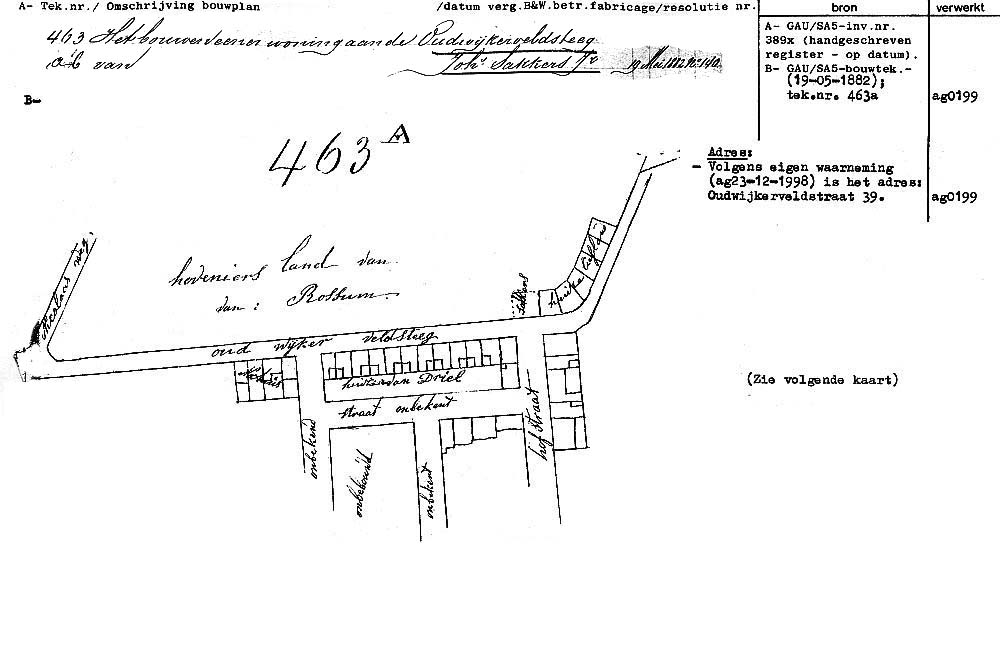 A- Tek.nr./ Omschrijving bouwplan /datum verg.B&W.betr.fabricage/resolutie nr. bron verwerkt
463 Het bouwen eener woning aan de Oudwijkerveldsteeg
van Johs Sakkers Jr 19 Mei 1882 No
A- GAU/SA5-inv.nr.
389x (handgeschreven
register - op datum).
B- GAU/SA5-bouwtek.-
(19-05-1882);
tek.nr. 463a ag0199
B-
463 A
Adres:
- Volgens eigen waarneming
(ag23-12-1998) is het adres:
Oudwijkerveldstraat 39. ag0199
weg
hoveniers land van
van: Rossum
oud wijker veldsteeg
huizen van Driel
straat onbekent
hof straat
onbekend
onbebouwd
onbekent
(Zie volgende kaart)